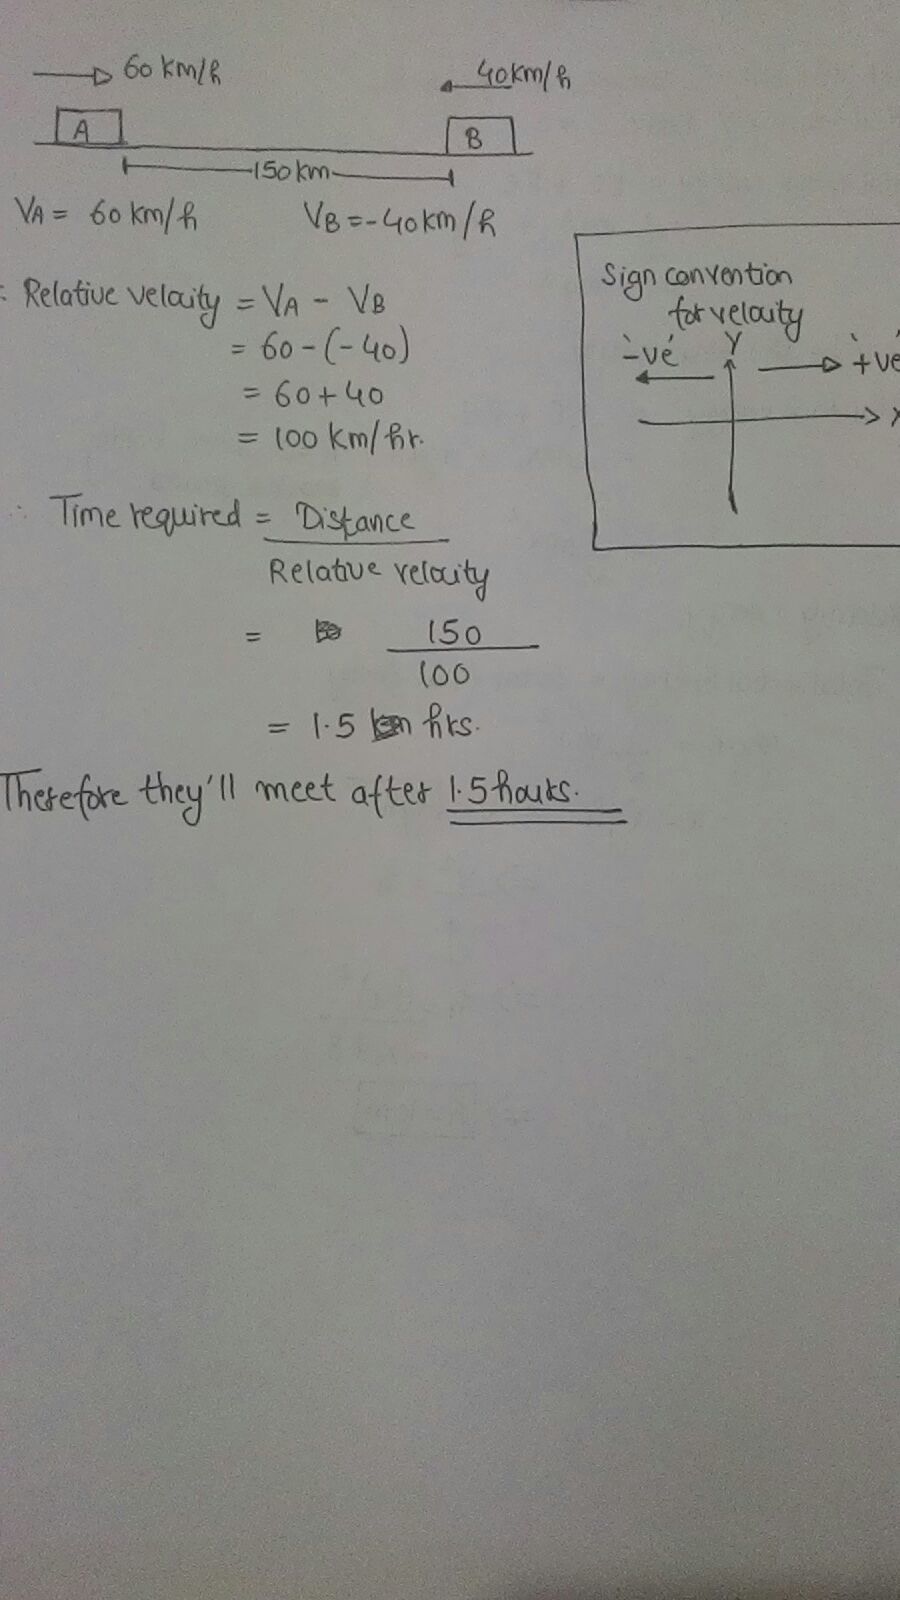 60 km/h
40km/h
A
B
150 km
VA = 60 km/h
VB = -40km/h
Sign convention
for velocity
: Relative velocity = VA - VB
= 60 - (-40)
= 60 + 40
= 100 km/hr.
'-ve'
Y
'+ve
X
∴ Time required = Distance
Relative velocity
= 150
100
= 1.5 hrs.
Therefore they'll meet after 1.5 hours.